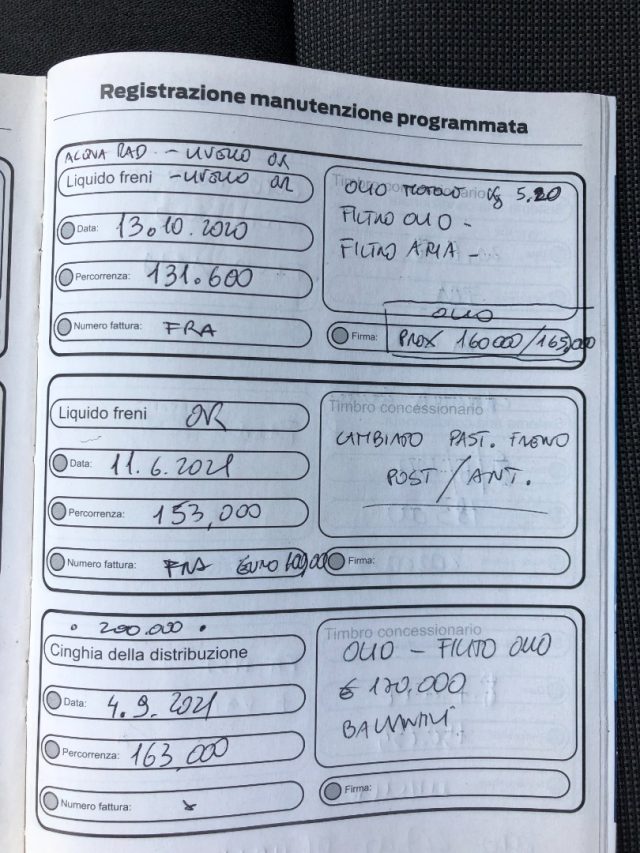 Registrazione manutenzione programmata
ACQUA RAD. - LIVELLO OK
Liquido freni - LIVELLO OK
Data: 13.10.2020
Percorrenza: 131.600
Numero fattura: FRA
Timbro concessionario
OLIO MOTORE Kg 5.20
FILTRO OLIO -
FILTRO ARIA -
OLIO
Firma: PROX 160000/165.000
Liquido freni OK
Data: 11.6.2021
Percorrenza: 153,000
Numero fattura: FRA EURO 100,00
Timbro concessionario
CAMBIATO PAST. FRENO
POST/ANT.
Firma:
• 200.000 •
Cinghia della distribuzione
Data: 4.9.2021
Percorrenza: 163,000
Numero fattura:
Timbro concessionario
OLIO - FILTRO OLIO
€ 170.000
Firma: